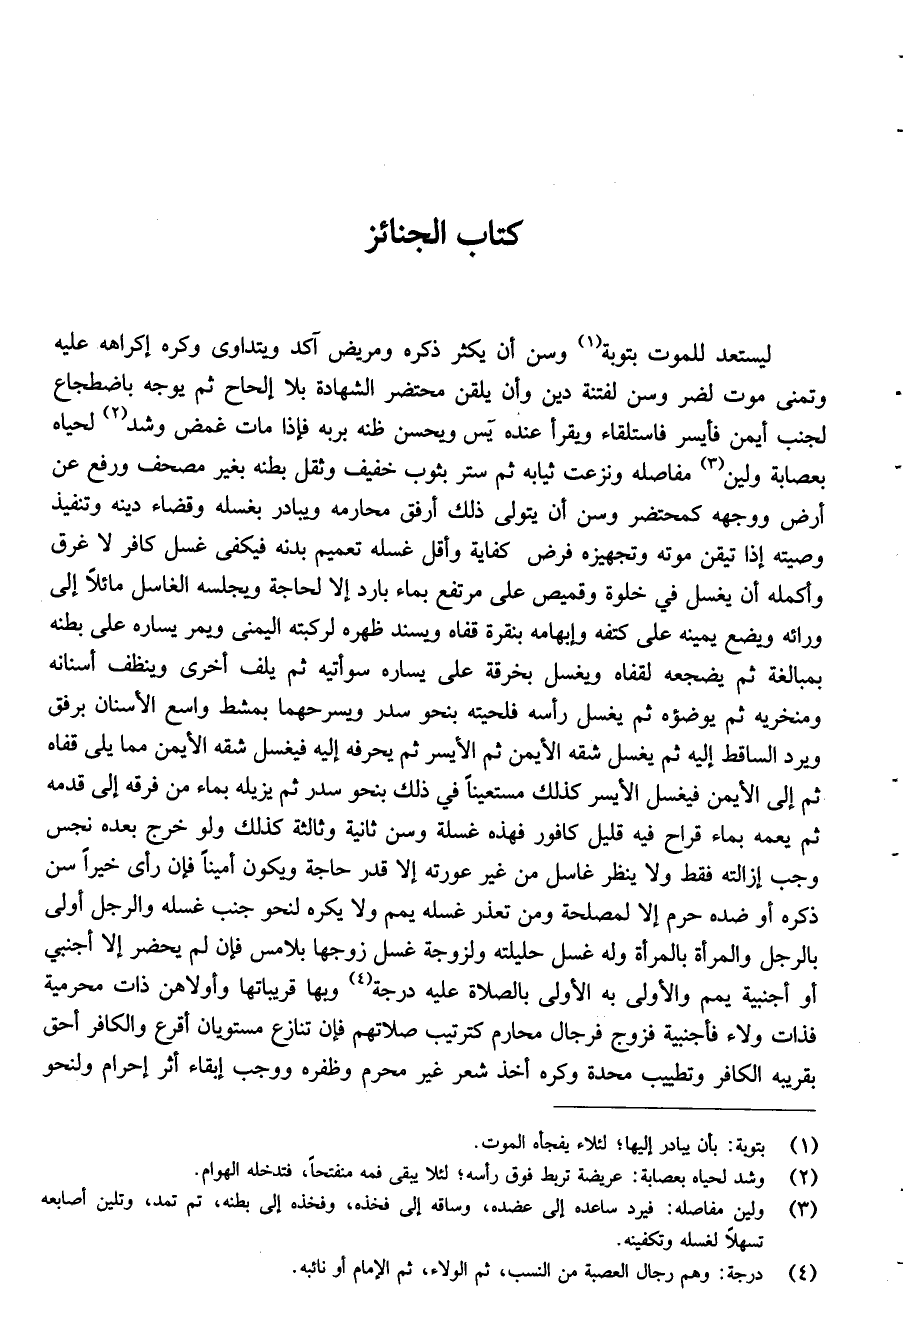 كتاب الجنائز
ليستعد للموت بتوبة(١) وسن أن يكثر ذكره ومريض آكد ويتداوى وكره إكراهه عليه
وتمنى موت لضر وسن لفتنة دين وأن يلقن محتضر الشهادة بلا إلحاح ثم يوجه باضطجاع
لجنب أيمن فأيسر فاستلقاء ويقرأ عنده يَس ويحسن ظنه بربه فإذا مات غمض وشد(٢) لحياه
بعصابة ولين(٣) مفاصله ونزعت ثيابه ثم ستر بثوب خفيف وثقل بطنه بغير مصحف ورفع عن
أرض ووجهه كمحتضر وسن أن يتولى ذلك أرفق محارمه ويبادر بغسله وقضاء دينه وتنفيذ
وصيته إذا تيقن موته وتجهيزه فرض كفاية وأقل غسله تعميم بدنه فيكفى غسل كافر لا غرق
وأكمله أن يغسل في خلوة وقميص على مرتفع بماء بارد إلا لحاجة ويجلسه الغاسل مائلاً إلى
ورائه ويضع يمينه على كتفه وإبهامه بنقرة قفاه ويسند ظهره لركبته اليمنى ويمر يساره على بطنه
بمبالغة ثم يضجعه لقفاه ويغسل بخرقة على يساره سوأتيه ثم يلف أخرى وينظف أسنانه
ومنخريه ثم يوضؤه ثم يغسل رأسه فلحيته بنحو سدر ويسرحهما بمشط واسع الأسنان برفق
ويرد الساقط إليه ثم يغسل شقه الأيمن ثم الأيسر ثم يحرفه إليه فيغسل شقه الأيمن مما يلى قفاه
ثم إلى الأيمن فيغسل الأيسر كذلك مستعيناً في ذلك بنحو سدر ثم يزيله بماء من فرقه إلى قدمه
ثم يعمه بماء قراح فيه قليل كافور فهذه غسلة وسن ثانية وثالثة كذلك ولو خرج بعده نجس
وجب إزالته فقط ولا ينظر غاسل من غير عورته إلا قدر حاجة ويكون أميناً فإن رأى خيراً سن
ذكره أو ضده حرم إلا لمصلحة ومن تعذر غسله يمم ولا يكره لنحو جنب غسله والرجل أولى
بالرجل والمرأة بالمرأة وله غسل حليلته ولزوجة غسل زوجها بلامس فإن لم يحضر إلا أجنبي
أو أجنبية يمم والأولى به الأولى بالصلاة عليه درجة(٤) وبها قريباتها وأولاهن ذات محرمية
فذات ولاء فأجنبية فزوج فرجال محارم كترتيب صلاتهم فإن تنازع مستويان أقرع والكافر أحق
بقريبه الكافر وتطييب محدة وكره أخذ شعر غير محرم وظفره ووجب إبقاء أثر إحرام ولنحو
(١) بتوبة: بأن يبادر إليها؛ لئلاء يفجأه الموت.
(٢) وشد لحياه بعصابة: عريضة تربط فوق رأسه؛ لئلا يبقى فمه منفتحاً، فتدخله الهوام.
(٣) ولين مفاصله: فيرد ساعده إلى عضده، وساقه إلى فخذه، وفخذه إلى بطنه، تم تمد، وتلين أصابعه
تسهلاً لغسله وتكفينه.
(٤) درجة: وهم رجال العصبة من النسب، ثم الولاء، ثم الإمام أو نائبه.